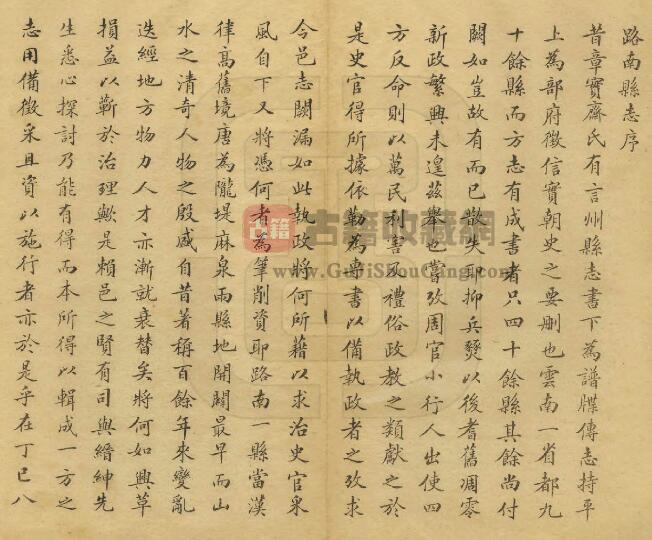 路南縣志序
昔章實齋氏有言州縣志書下為譜牒傳志持平
上為部府徵信實朝史之要刪也雲南一省都九
十餘縣而方志有成書者只四十餘縣其餘尚付
闕如豈故有而已散失耶抑兵燹以後耆舊凋零
新政繁興未遑茲舉也嘗攷周官小行人出使四
方反命則以萬民利害及禮俗政教之類獻之於
是史官得所據依勒為專書以備執政者之攷求
今邑志闕漏如此執政將何所藉以求治史官采
風自下又將憑何者為筆削資耶路南一縣當漢
律高舊境唐為隴堤麻泉兩縣地開闢最早而山
水之清奇人物之殷盛自昔著稱百餘年來變亂
迭經地方物力人才亦漸就衰替矣將何如興草
損益以蘄於治理歟是賴邑之賢有司與縉紳先
生悉心探討乃能有得而本所得以輯成一方之
志用備徵采且資以施行者亦於是乎在丁巳八
古籍
古籍收藏網
www.GuJiShouCang.com